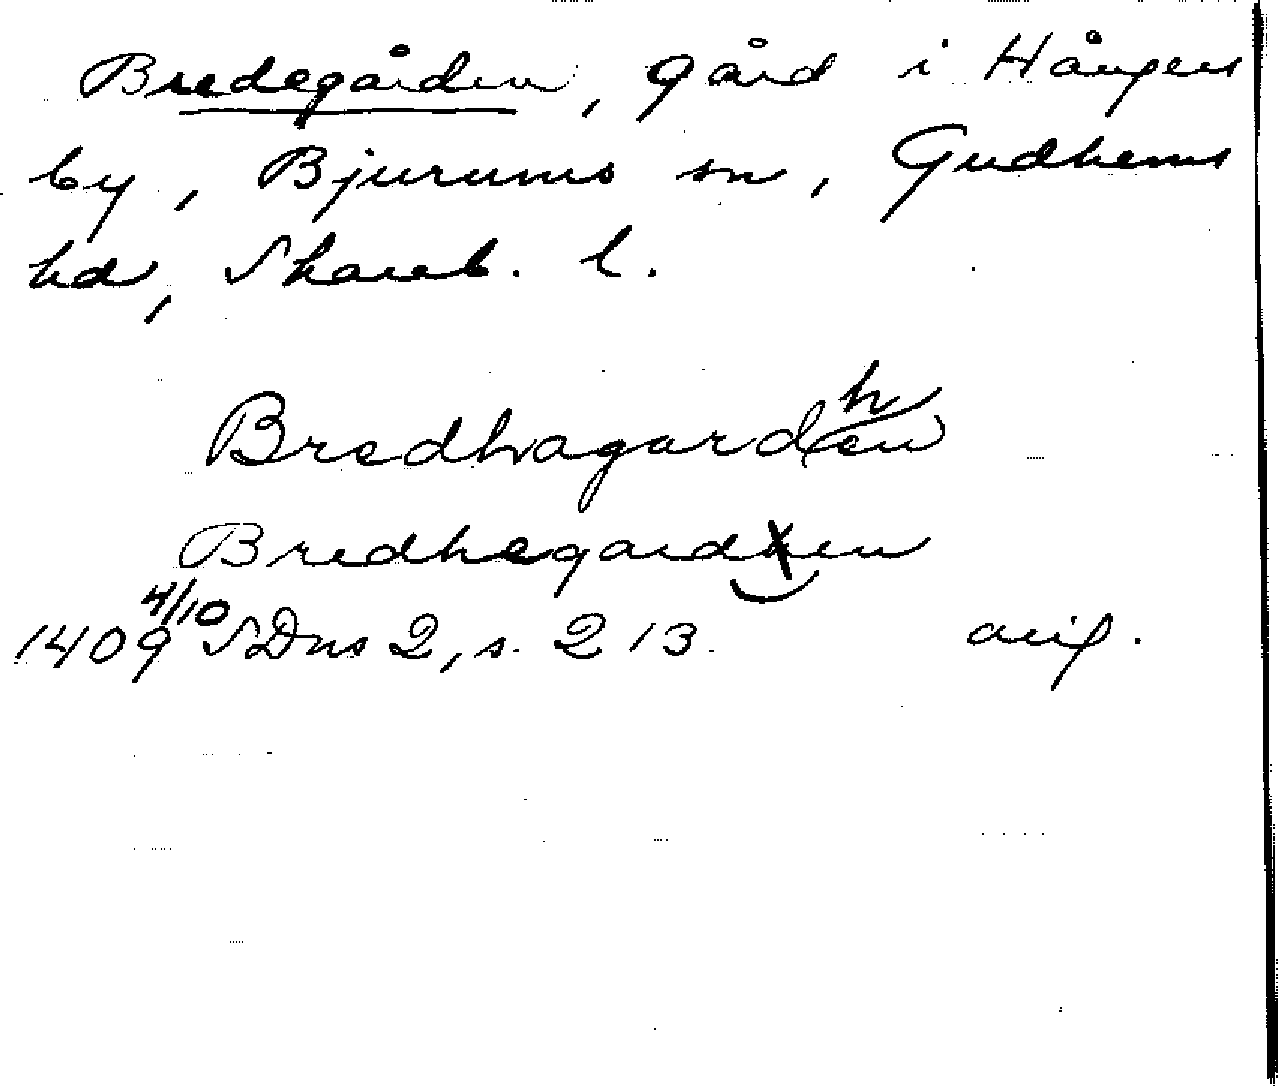 Bredegården, gård i Hångers
by, Bjurums sn, Gudhems
hd, Skarab. l.
Bredhagardhen
Bredhegarden
1409 4/10 SDns 2, s. 213. avig.